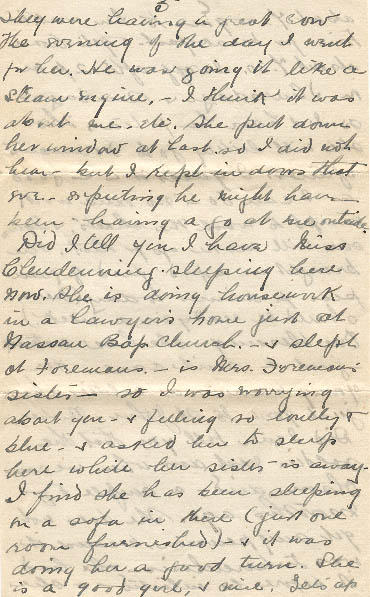 5
They were having a great row
the evening of the day I went
for her. He was going it like a
steam engine. - I think it was
about me. etc. She put down
her window at last. so I did not
hear - but I kept in doors that
eve. - expecting he might have
been - having a go at me outside.
Did I tell you I have Miss
Clendenning sleeping here
now. She is doing housework
in a Lawyers home just at
Nassau Bap Church. - & slept
at Foremans. - is Mrs. Foremans
sister - so I was worrying
about you - & feeling so lonely &
blue - & asked her to sleep
here while her sister is away.
I find she has been sleeping
on a sofa in there (just one
room furnished) - & it was
doing her a good turn. She
is a good girl, & nice. Gets up